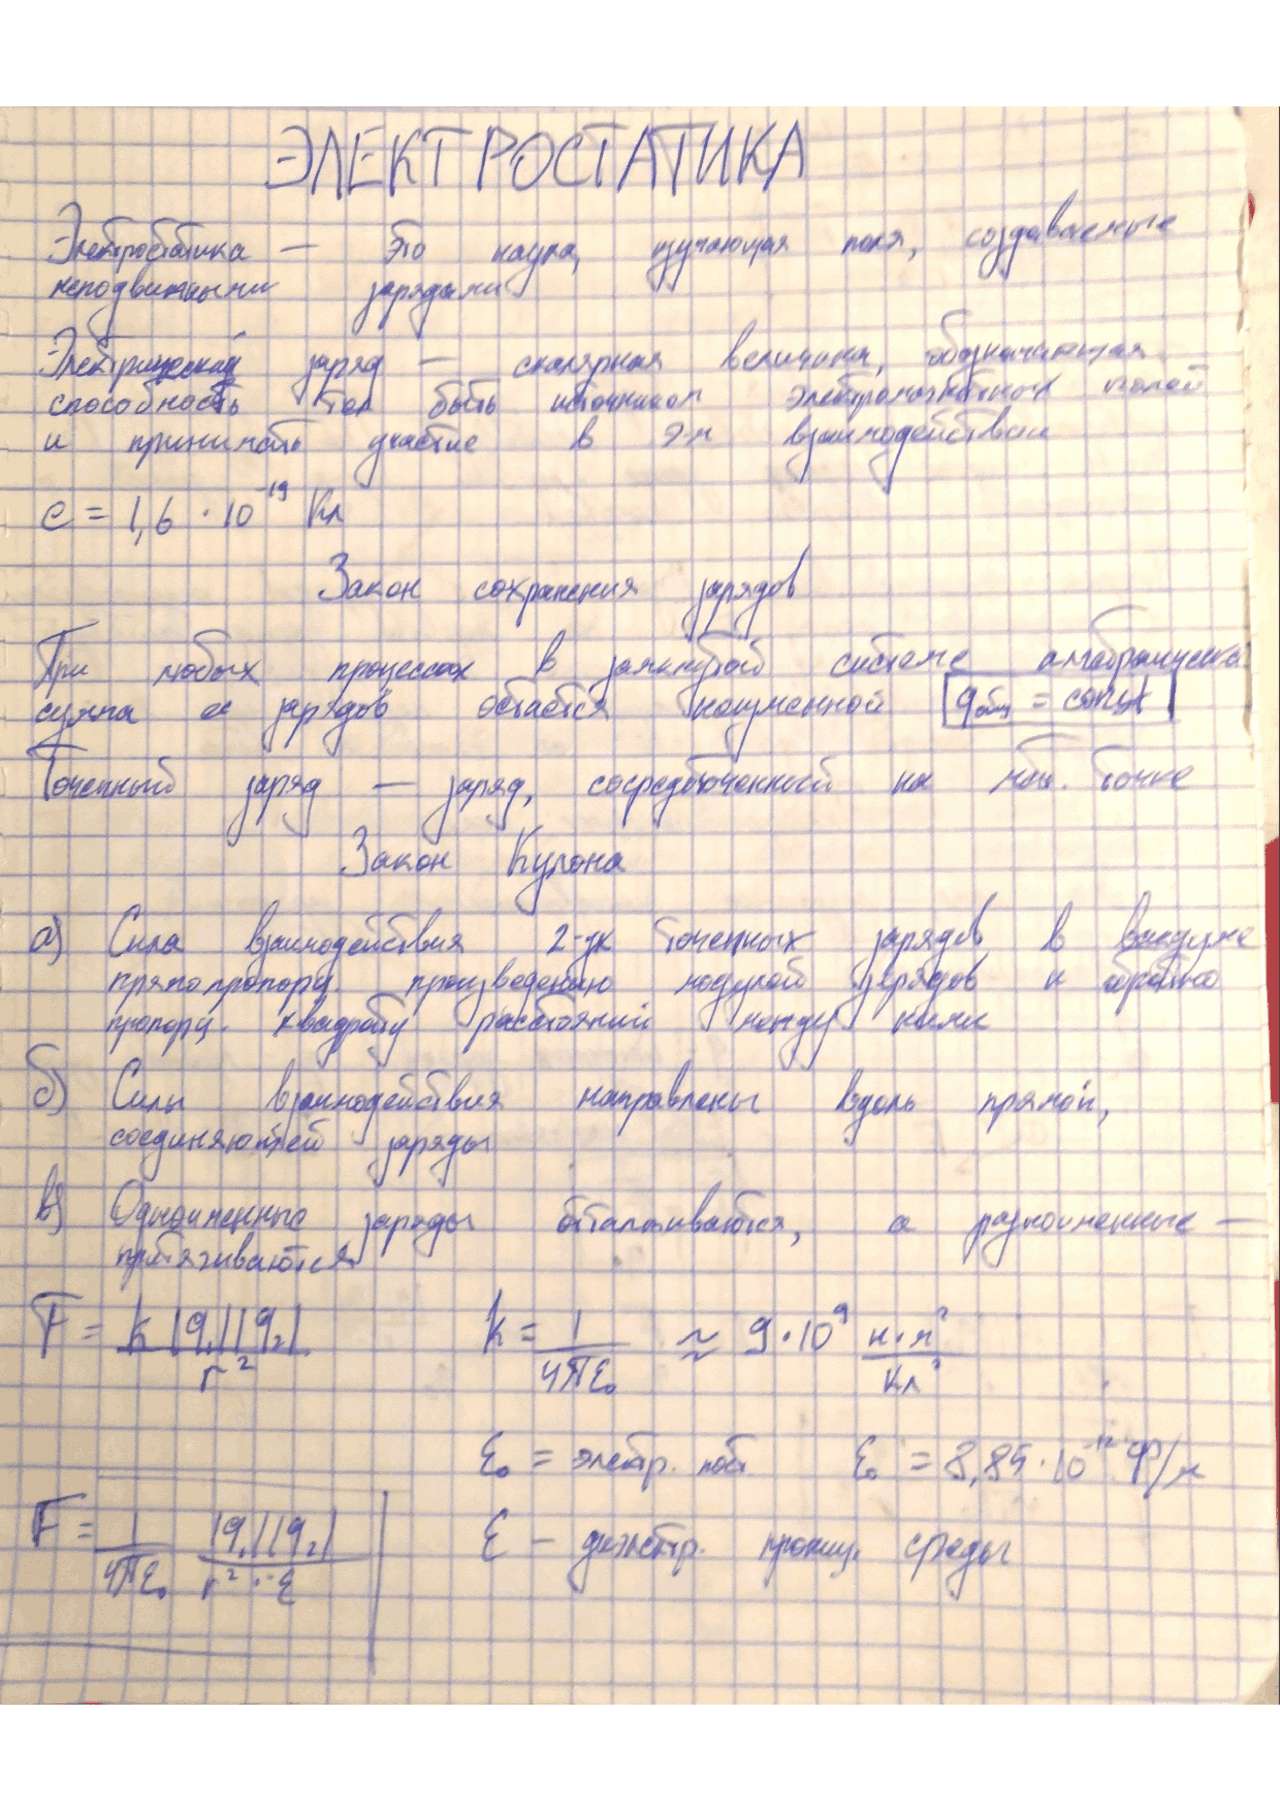 ЭЛЕКТРОСТАТИКА
Электростатика — это наука, изучающая поля, создаваемые
неподвижными зарядами
Электрический заряд — скалярная величина, обозначающая
способность тел быть источником электромагнитных полей
и принимать участие в э-м взаимодействии
e = 1,6 · 10⁻¹⁹ Кл
Закон сохранения зарядов
При любых процессах в замкнутой системе алгебраическа
сумма зарядов остаётся неизменной qобщ = const
Точечный заряд — заряд, сосредоточенный на мат. точке
Закон Кулона
а) Сила взаимодействия 2-ух точечных зарядов в вакууме
прямопропорц. произведению модулей зарядов и обратно
пропорц. квадрату расстояний между ними
б) Силы взаимодействия направлены вдоль прямой,
соединяющей заряды
в) Одноименные заряды отталкиваются, а разноименные —
притягиваются
F = k |q₁||q₂| / r² k = 1 / 4πε₀ ≈ 9 · 10⁹ Н·м² / Кл²
ε₀ = электр. пост ε₀ = 8,85 · 10⁻¹² Ф/м
F = 1 / 4πε₀ |q₁||q₂| / r² · ε ε — диэлектр. прониц. среды